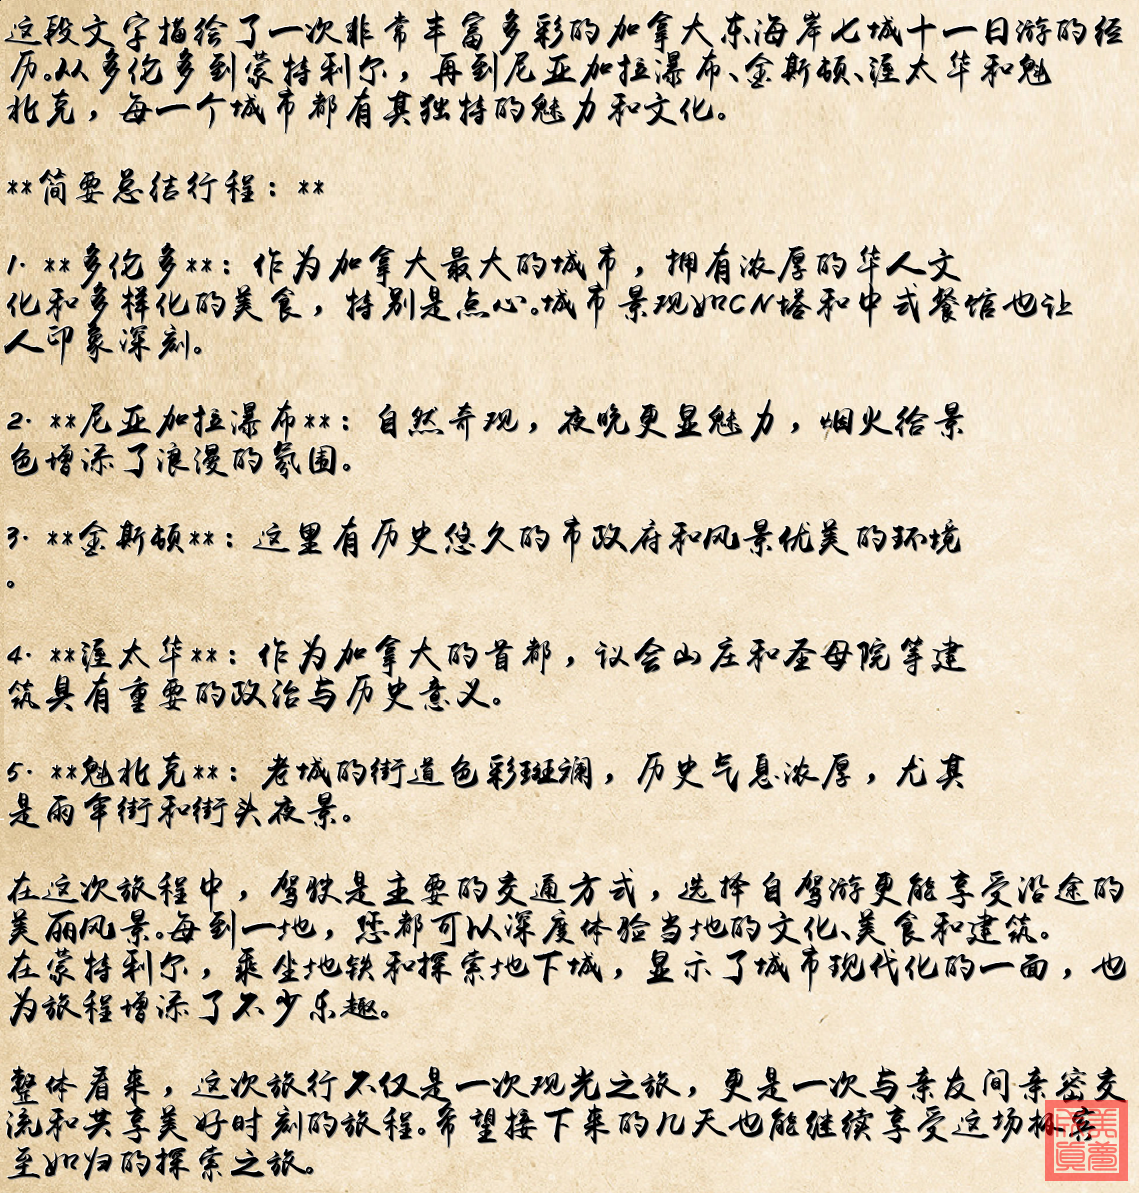 这段文字描绘了一次非常丰富多彩的加拿大东海岸七城十一日游的经
历。从多伦多到蒙特利尔，再到尼亚加拉瀑布、金斯顿、渥太华和魁
北克，每一个城市都有其独特的魅力和文化。
**简要总结行程：**
1. **多伦多**：作为加拿大最大的城市，拥有浓厚的华人文
化和多样化的美食，特别是点心。城市景观如CN塔和中式餐馆也让
人印象深刻。
2. **尼亚加拉瀑布**：自然奇观，夜晚更显魅力，烟火给景
色增添了浪漫的氛围。
3. **金斯顿**：这里有历史悠久的市政府和风景优美的环境
。
4. **渥太华**：作为加拿大的首都，议会山庄和圣母院等建
筑具有重要的政治与历史意义。
5. **魁北克**：老城的街道色彩斑斓，历史气息浓厚，尤其
是雨伞街和街头夜景。
在这次旅程中，驾驶是主要的交通方式，选择自驾游更能享受沿途的
美丽风景。每到一地，您都可以深度体验当地的文化、美食和建筑。
在蒙特利尔，乘坐地铁和探索地下城，显示了城市现代化的一面，也
为旅程增添了不少乐趣。
整体看来，这次旅行不仅是一次观光之旅，更是一次与亲友间亲密交
流和共享美好时刻的旅程。希望接下来的几天也能继续享受这场宾
至如归的探索之旅。